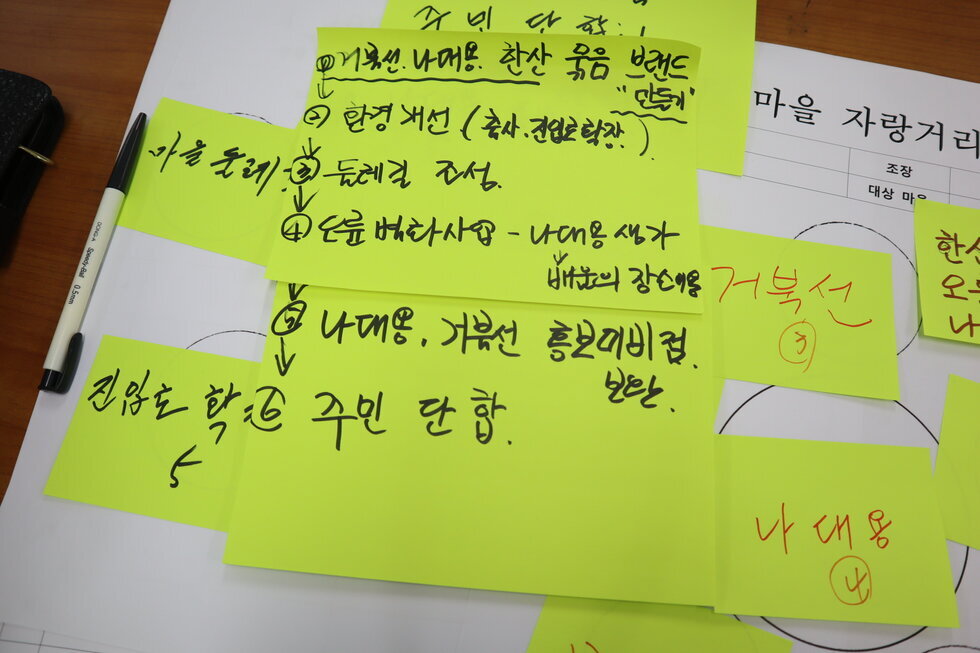 주민 단합.
① 거북선. 나대용. 한산 묶음 브랜드
"만들기"
② 환경개선 (축사. 진입로확장.)
마을 둘레
③ 둘레길 조성.
④ 벽화사업 - 나대용 생가
배움의 장소이용
⑤ 나대용. 거북선 홍보대비점.
보완.
진입로 확
⑥ 주민 단합.
5
마을 자랑거리
조장
대상 마을
한산
오
나
거북선
③
나대용
④
DONG-A Speedy-Ball 0.5mm